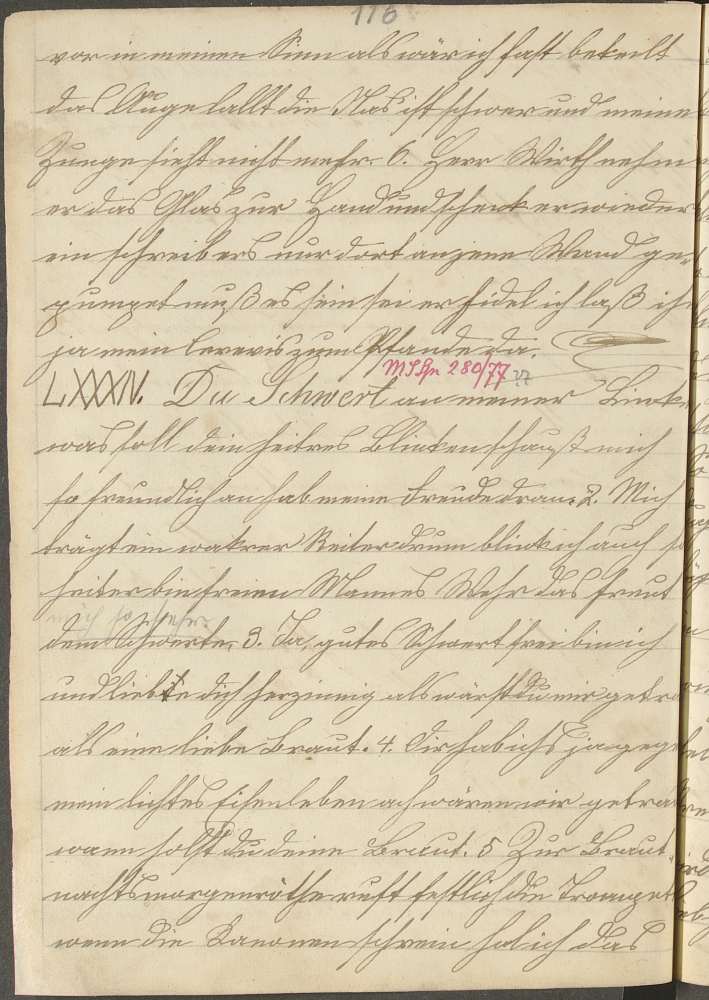 116
vor in meinen Sinn als wär ich fast beteilt
das Auge lallt die Nas ist schwer und meine
Zunge sieht nicht mehr. 6. Herr Wirth nehm
er das Glas zur Hand und schenk er wieder
ein schreib ers nur dort an jene Wand ge-
pumpet muß es sein sei er fidel ich laß ih
ja mein Cerevis zum Pfande da.
MS Hr 280/77 77
LXXXIV. Du Schwert an meiner Linke
was soll dein heitres Blinken schaust mich
so freundlich an hab meine Freude dran. 2. Mich
trägt ein wakrer Reiter drum blink ich auch so
heiter bin freien Mannes Wehr das freut
mich so sehr
dem Schwerte. 3. Ja, gutes Schwert frei bin ich
und liebte dich herzinnig als wärst Du mir getra
als eine liebe Braut. 4. Dir hab ichs ja gege
mein lichtes Eisenleben ach wären wir getra
wann holst du deine Braut. 5 Zur Braut
nachtsmorgenröthe ruft festlich die Trompet
wenn die Kanonen schrein hol ich das